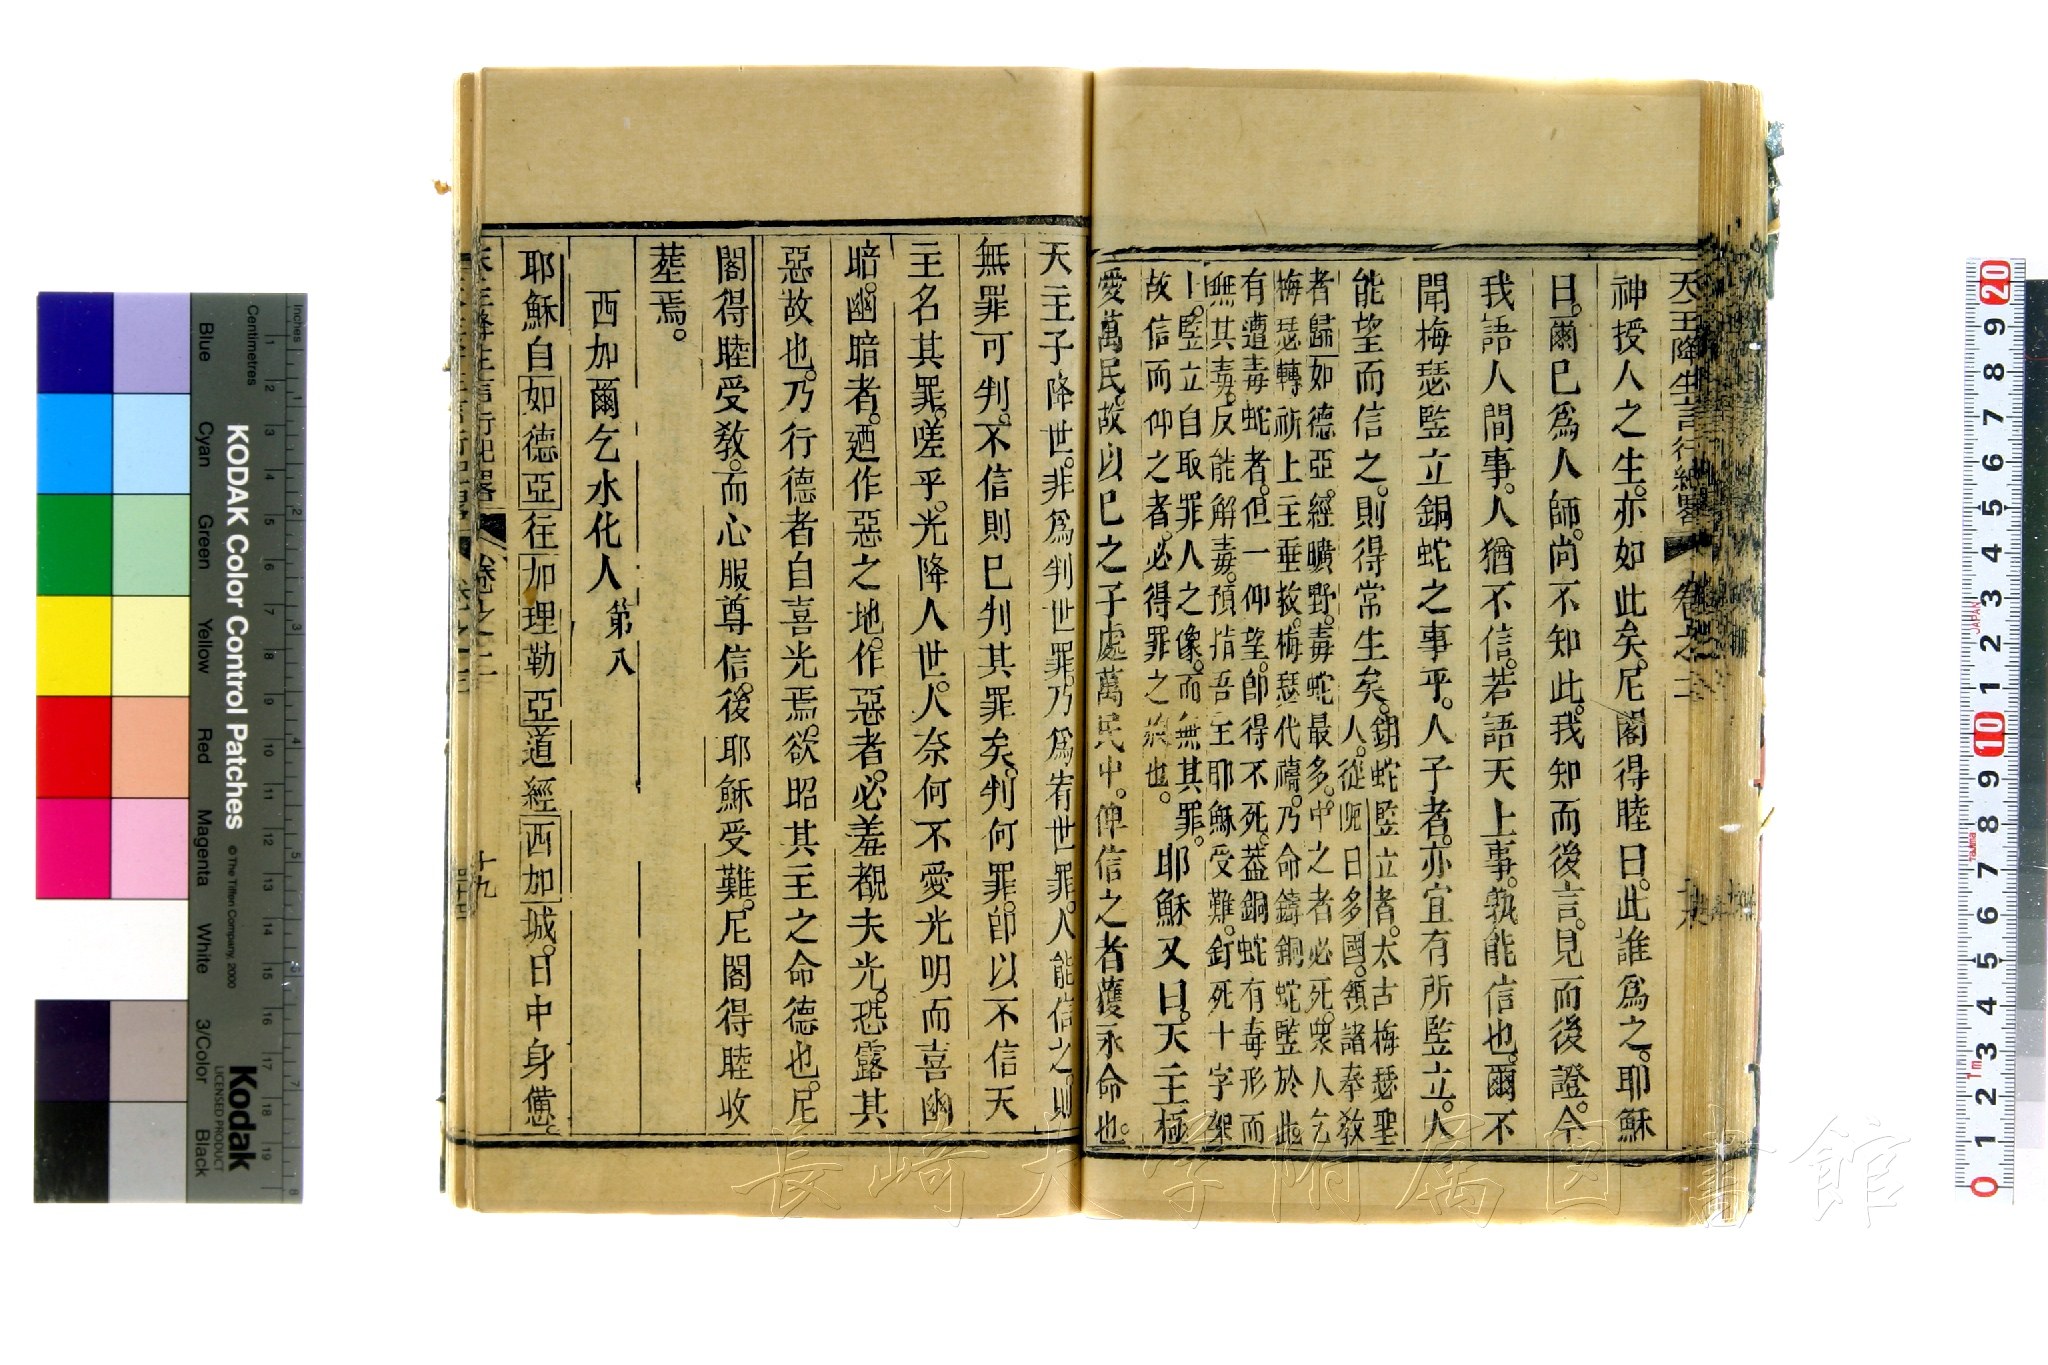 天主降生言行紀畧 卷之二
神授人之生。亦如此矣。尼閣得睦曰。此誰爲之。耶穌
曰。爾已爲人師。尚不知此。我知而後言。見而後證。今
我語人間事。人猶不信。若語天上事。孰能信也。爾不
聞梅瑟監立銅蛇之事乎。人子者。亦宜有所監立。人
能望而信之。則得常生矣。
銅蛇監立者。太古梅瑟聖
人。從阨日多國。領諸奉敎
者歸如德亞。經曠野。毒蛇最多。中之者必死。衆人乞
梅瑟轉祈上主垂救。梅瑟代禱。乃命鑄銅蛇監於此
有遭毒蛇者。但一仰望。卽得不死。葢銅蛇有毒形而
無其毒。反能解毒。預指吾主耶穌受難。釘死十字架
上。監立自取罪人之像。而無其罪。
故信而仰之者。必得罪之赦也。
耶穌又曰。天主極
愛萬民。故以已之子處萬民中。俾信之者獲永命也。
天主子降世。非爲判世罪。乃爲宥世罪。人能信之。則
無罪可判。不信則已判其罪矣。判何罪。卽以不信天
主名其罪。嗟乎。光降人世。人奈何不愛光明而喜幽
暗。幽暗者。廼作惡之地。作惡者。必羞覩夫光。恐露其
惡故也。乃行德者自喜光焉。欲昭其主之命德也。尼
閣得睦受敎。而心服尊信。後耶穌受難。尼閣得睦收
塟焉。
西加爾乞水化人 第八
耶穌自如德亞往加理勒亞道經西加城。日中身憊。
天主降生言行紀畧 卷之二 十九
KODAK Color Control Patches
© The Tiffen Company, 2000
Kodak
LICENSED PRODUCT
Inches
Centimetres
Blue
Cyan
Green
Yellow
Red
Magenta
White
3/Color
Black
1 2 3 4 5 6 7 8
1 2 3 4 5 6 7 8 9 10 11 12 13 14 15 16 17 18 19
0 1 2 3 4 5 6 7 8 9 10 1 2 3 4 5 6 7 8 9 20
JAPAN
長崎大学附属図書館